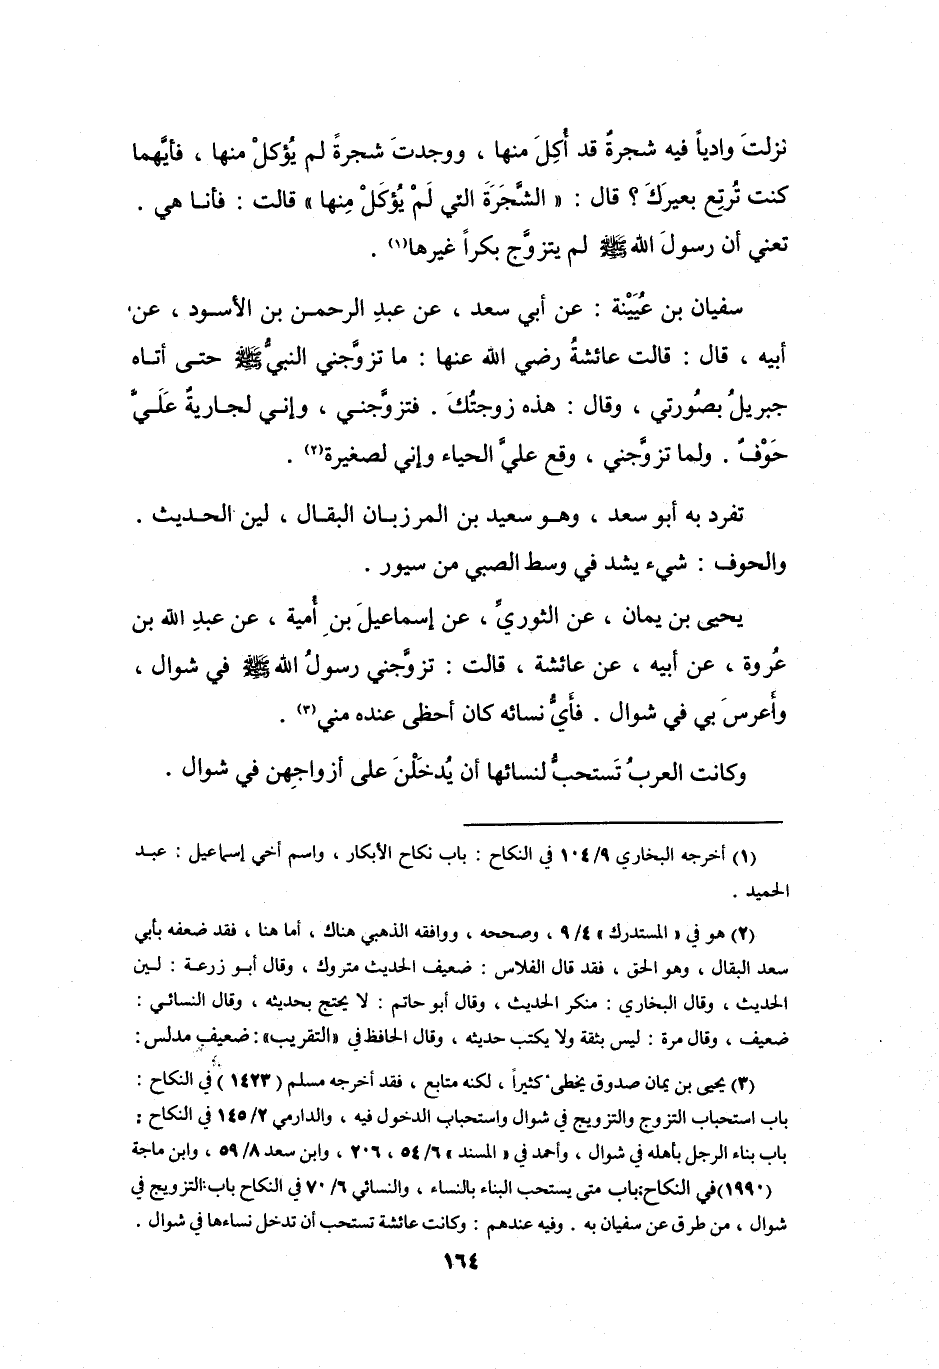 نزلتَ وادياً فيه شجرةٌ قد أُكِلَ منها ، ووجدتَ شجرةً لم يُؤكلْ منها ، فأيَّهما
كنت تُرتِع بعيرَكَ ؟ قال : « الشَّجَرَةَ التي لَمْ يُؤكَلْ مِنها » قالت : فأنـا هي .
تعني أن رسولَ الله ﷺ لم يتزوَّج بكراً غيرها(١) .
سفيان بن عُيَيْنة : عن أبي سعد ، عن عبدِ الرحمـن بن الأسـود ، عن
أبيه ، قال : قالت عائشةُ رضي الله عنها : ما تزوَّجني النبيُّ ﷺ حتـى أتـاه
جبريلُ بصُورتي ، وقال : هذه زوجتُكَ . فتزوَّجنـي ، وإنـي لجاريةٌ عَلَـيَّ
حَوْفٌ . ولما تزوَّجني ، وقع عليَّ الحياء وإني لصغيرة(٢) .
تفرد به أبو سعد ، وهـو سعيد بن المرزبـان البقـال ، لين الحـديث .
والحوف : شيء يشد في وسط الصبي من سيور .
يحيى بن يمان ، عن الثوريِّ ، عن إسماعيلَ بنِ أُمية ، عن عبدِ الله بن
عُروة ، عن أبيه ، عن عائشة ، قالت : تزوَّجني رسولُ الله ﷺ في شوال ،
وأَعرسَ بي في شوال . فأَيُّ نسائه كان أحظى عنده مني(٣) .
وكانت العربُ تَستحبُّ لنسائها أن يُدخَلْنَ على أزواجِهن في شوال .
(١) أخرجه البخاري ٩/ ١٠٤ في النكاح : باب نكاح الأبكار ، واسم أخي إسماعيل : عبـد
الحميد .
(٢) هو في « المستدرك » ٤/ ٩ ، وصححه ، ووافقه الذهبي هناك ، أما هنا ، فقد ضعفه بأبي
سعد البقال ، وهو الحق ، فقد قال الفلاس : ضعيف الحديث متروك ، وقال أبـو زرعة : لـين
الحديث ، وقال البخاري : منكر الحديث ، وقال أبو حاتم : لا يحتج بحديثه ، وقال النسائـي :
ضعيف ، وقال مرة : ليس بثقة ولا يكتب حديثه ، وقال الحافظ في «التقريب»: ضعيف مدلس :
(٣) يحيى بن يمان صدوق يخطىء كثيراً ، لكنه متابع ، فقد أخرجه مسلم ( ١٤٢٣ ) في النكاح :
باب استحباب التزوج والتزويج في شوال واستحباب الدخول فيه ، والدارمي ٢/ ١٤٥ في النكاح :
باب بناء الرجل بأهله في شوال ، وأحمد في « المسند » ٦/ ٥٤ ، ٢٠٦ ، وابن سعد ٨/ ٥٩ ، وابن ماجة
(١٩٩٠)في النكاح:باب متى يستحب البناء بالنساء ، والنسائي ٦/ ٧٠ في النكاح باب:التزويج في
شوال ، من طرق عن سفيان به . وفيه عندهم : وكانت عائشة تستحب أن تدخل نساءها في شوال .
١٦٤